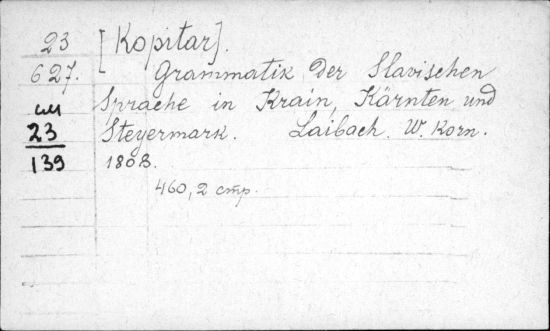 23 [Kopitar].
627. Grammatik der Slavischen
см Sprache in Krain, Kärnten und
23 Steyermark. Laibach. W. Korn.
139 1808.
460, 2 стр.